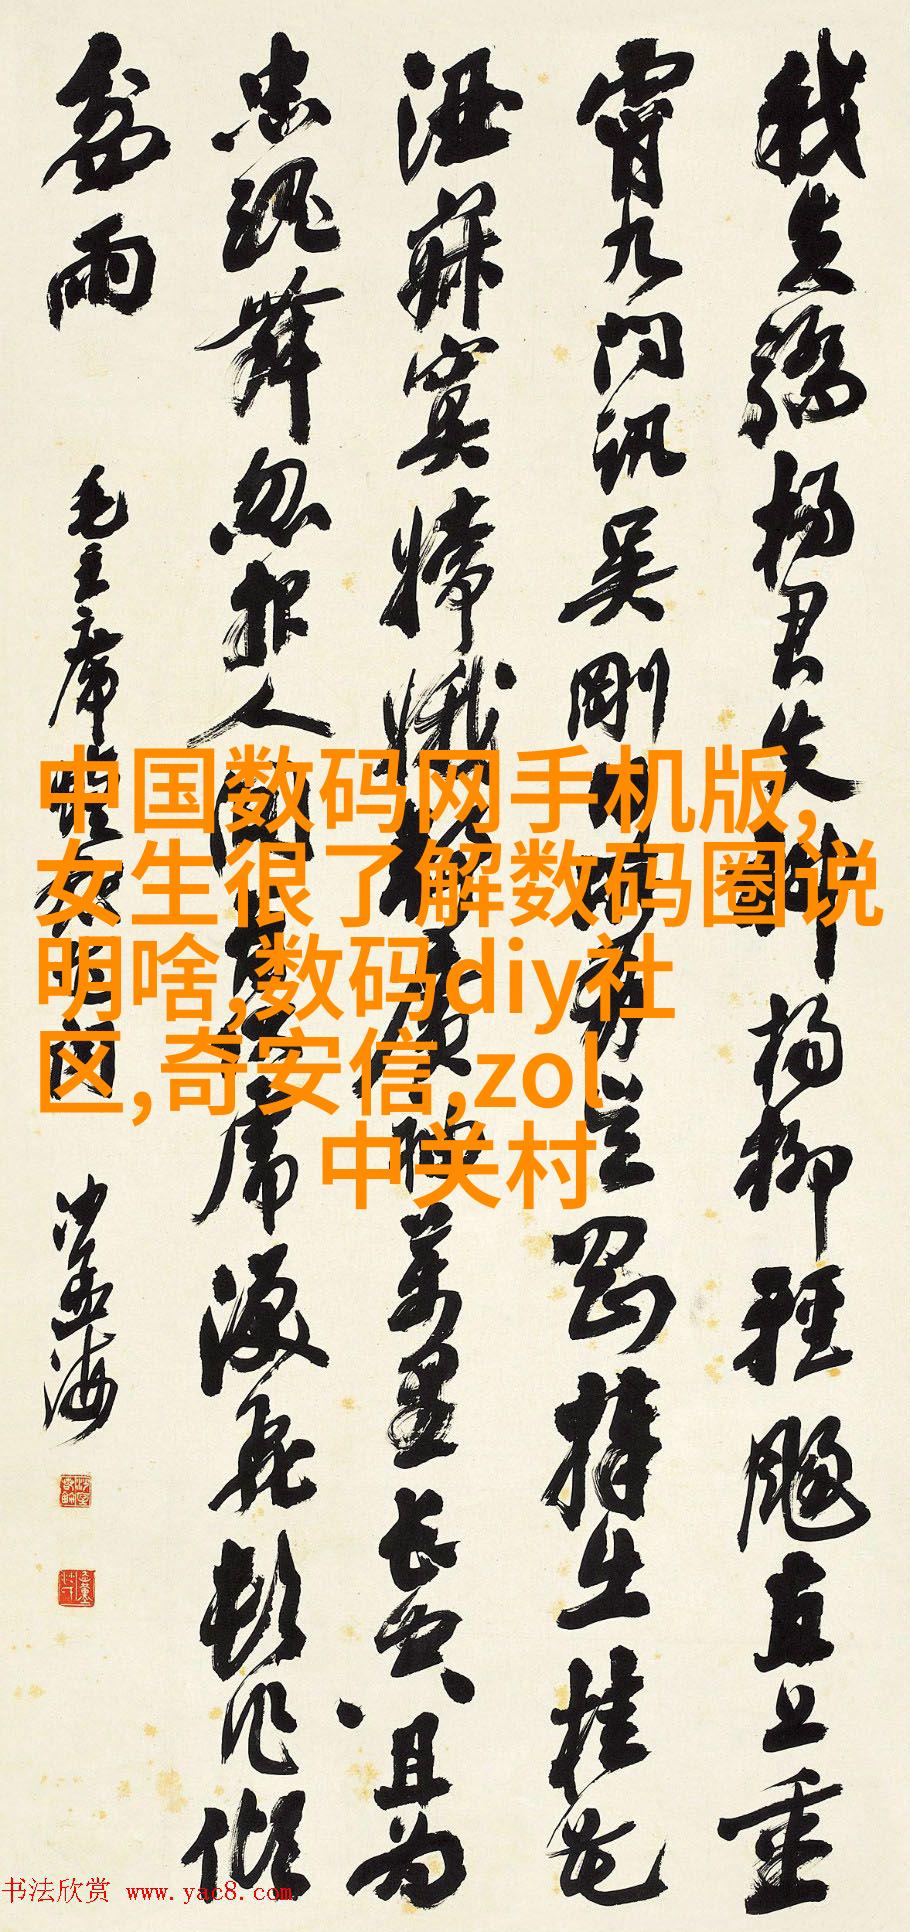 我失驕楊君失柳楊柳輕颺直上重
霄九問訊吴剛何所有吴剛捧出桂花
酒寂寞嫦娥舒廣袖萬里长空且为
忠魂舞忽报人間曾伏虎淚飛頓作傾
盆雨
毛主席蝶恋花词
沙孟海
中国数码网手机版,
女生很了解数码圈说
明啥,数码diy社
区,奇安信,zol
中关村
书法欣赏 www.yac8.com